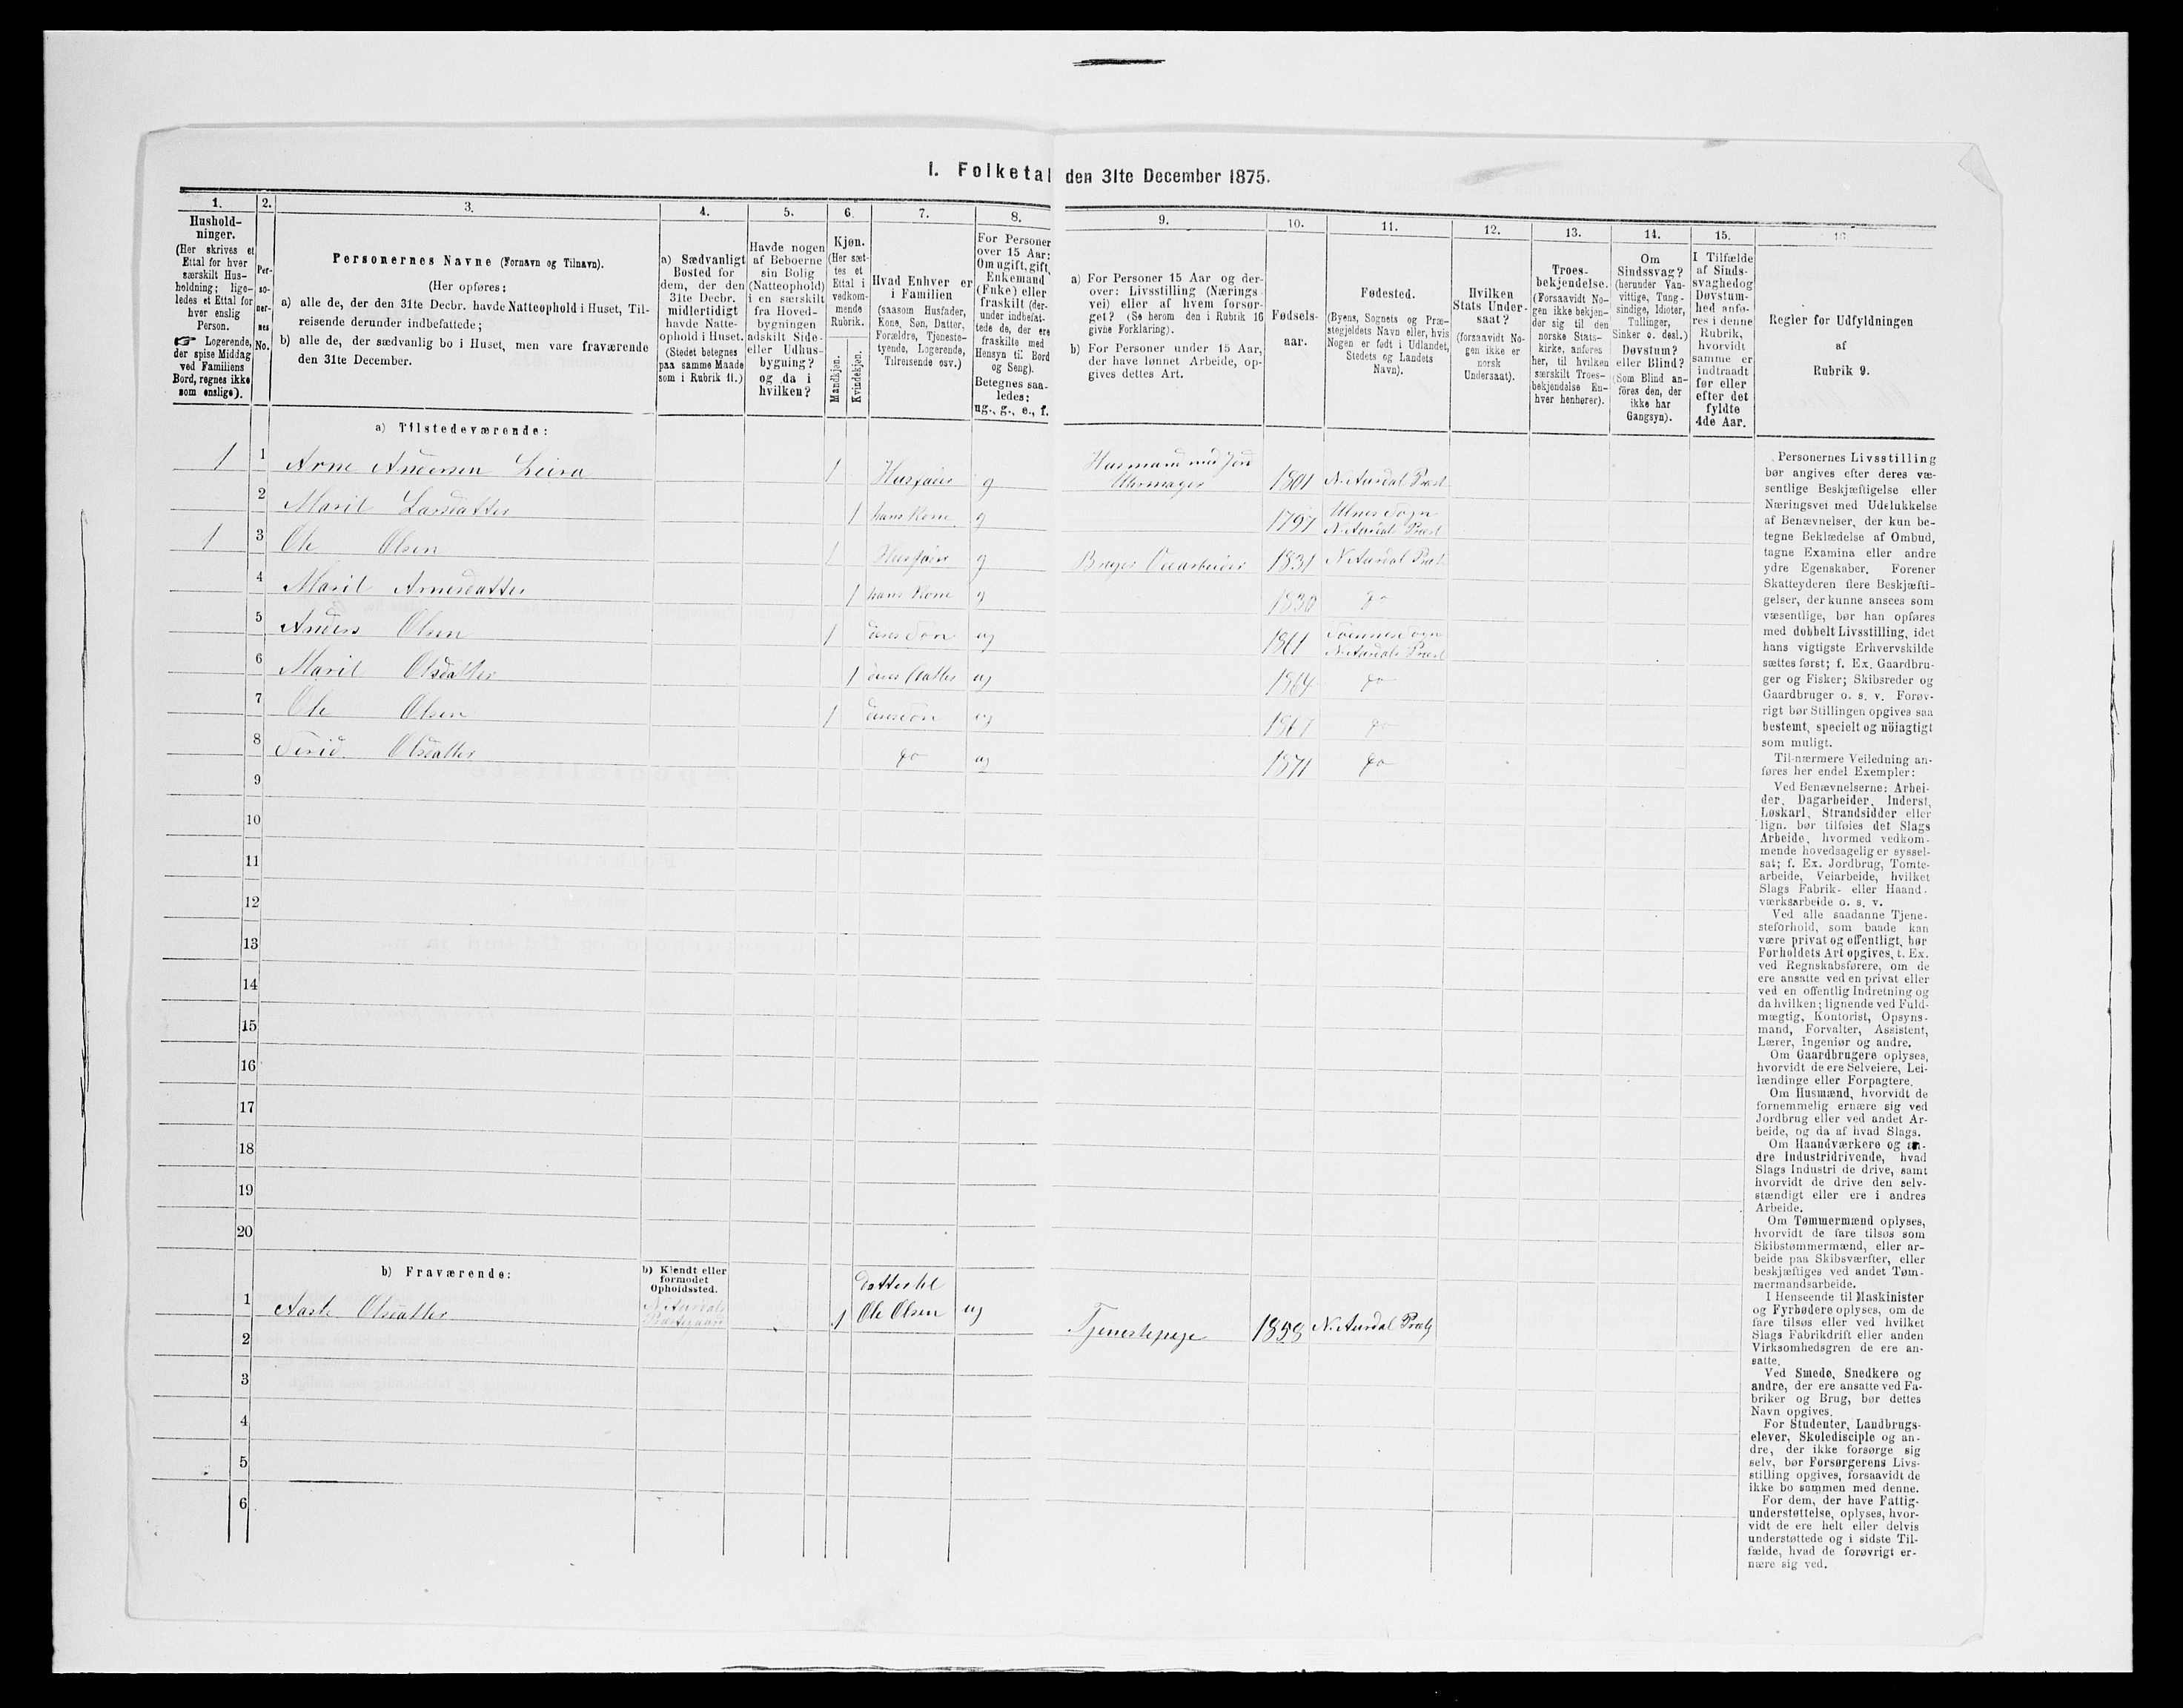 I. Folketal den 31te December 1875.
1.
Hushold-
ninger.
(Her skrives et
Ettal for hver
særskilt Hus-
holdning; lige-
ledes et Ettal for
hver enslig
Person.
☞ Logerende,
der spise Middag
ved Familiens
Bord, regnes ikke
som enslige).
2.
Per-
so-
ner-
nes
No.
3.
Personernes Navne (Fornavn og Tilnavn).
(Her opføres:
a) alle de, der den 31te Decbr. havde Natteophold i Huset, Til-
reisende derunder indbefattede;
b) alle de, der sædvanlig bo i Huset, men vare fraværende
den 31te December.
4.
a) Sædvanligt
Bosted for
dem, der den
31te Decbr.
midlertidigt
havde Natte-
ophold i Huset.
(Stedet betegnes
paa samme Maade
som i Rubrik 11.)
5.
Havde nogen
af Beboerne
sin Bolig
(Natteophold)
i en særskilt
fra Hoved-
bygningen
adskilt Side-
eller Udhus-
bygning?
og da i
hvilken?
6.
Kjøn.
(Her sæt-
tes et
Ettal i
vedkom-
mende
Rubrik.
Mandkjøn.
Kvindekjøn.
7.
Hvad Enhver er
i Familien
(saasom Husfader,
Kone, Søn, Datter,
Forældre, Tjeneste-
tyende, Logerende,
Tilreisende osv.)
8.
For Personer
over 15 Aar:
Om ugift, gift,
Enkemand
(Enke) eller
fraskilt (der-
under indbefat-
tede de, der ere
fraskilte med
Hensyn til Bord
og Seng).
Betegnes saa-
ledes:
ug., g., e., f.
9.
a) For Personer 15 Aar og der-
over: Livsstilling (Nærings
vei) eller af hvem forsør-
get? (Se herom den i Rubrik 16
givne Forklaring).
b) For Personer under 15 Aar,
der have lønnet Arbeide, op-
gives dettes Art.
10.
Fødsels-
aar.
11.
Fødested.
(Byens, Sognets og Præ-
stegjeldets Navn eller, hvis
Nogen er født i Udlandet,
Stedets og Landets
Navn).
12.
Hvilken
Stats Under-
saat?
(forsaavidt No-
gen ikke er
norsk
Undersaat).
13.
Troes-
bekjendelse.
(Forsaavidt No-
gen ikke bekjen-
der sig til den
norske Stats-
kirke, anføres
her, til hvilken
særskilt Troes-
bekjendelse En-
hver henhører).
14.
Om
Sindssvag?
(herunder Van-
vittige, Tung-
sindige, Idioter,
Tullinger,
Sinker o. desl.)
Døvstum?
eller Blind?
(Som Blind an-
føres den, der
ikke har
Gangsyn).
15.
I Tilfælde
af Sinds-
svaghed og
Døvstum-
hed anfø-
res i denne
Rubrik,
hvorvidt
samme er
indtraadt
før eller
efter det
fyldte
4de Aar.
16
Regler for Udfyldningen
af
Rubrik 9.
a) Tilstedeværende:
1 1 Arne Andersen Leira 1 Husfader g Husmand med Jord Uhrmager 1801 N. Aurdal Præst
2 Marit Larsdatter 1 hans Kone g 1797 Ulnes Sogn N. Aurdals Præst
1 3 Ole Olsen 1 Husfader g 1831 N. Aurdal Præst
4 Marit Arnesdatter 1 hans Kone g 1830 do
5 Anders Olsen 1 deres Søn ug 1861 Svennes Sogn N. Aurdals Præst
6 Marit Olsdatter 1 deres Datter ug 1864 do
7 Ole Olsen 1 deres Søn ug 1867 do
8 Olsdatter do ug 1871 do
9
10
11
12
13
14
15
16
17
18
19
20
b) Fraværende:
b) Kjendt eller
formodet
Opholdssted.
1 Olsdatter N. Aurdals 1 Datter til Ole Olsen ug Tjenestepige 1858 N. Aurdal Præstg
2
3
4
5
6
Personernes Livsstilling
bør angives efter deres væ-
sentlige Beskjæftigelse eller
Næringsvei med Udelukkelse
af Benævnelser, der kun be-
tegne Beklædelse af Ombud,
tagne Examina eller andre
ydre Egenskaber. Forener
Skatteyderen flere Beskjæfti-
gelser, der kunne ansees som
væsentlige, bør han opføres
med dobbelt Livsstilling, idet
hans vigtigste Erhvervskilde
sættes først; f. Ex. Gaardbru-
ger og Fisker; Skibsreder og
Gaardbruger o. s. v. Forøv-
rigt bør Stillingen opgives saa
bestemt, specielt og nöiagtigt
som muligt.
Til nærmere Veiledning an-
føres her endel Exempler:
Ved Benævnelserne: Arbei-
der, Dagarbeider, Inderst,
Løskarl, Strandsidder eller
lign. bør tilføies det Slags
Arbeide, hvormed vedkom-
mende hovedsagelig er syssel-
sat; f. Ex. Jordbrug, Tomte-
arbeide, Veiarbeide, hvilket
Slags Fabrik- eller Haand-
værksarbeide o. s. v.
Ved alle saadanne Tjene-
steforhold, som baade kan
være privat og offentligt, bør
Forholdets Art opgives, t. Ex.
ved Regnskabsførere, om de
ere ansatte ved en privat eller
ved en offentlig Indretning og
da hvilken; lignende ved Fuld-
mægtig, Kontorist, Opsyns-
mand, Forvalter, Assistent,
Lærer, Ingeniør og andre.
Om Gaardbrugere oplyses,
hvorvidt de ere Selveiere, Lei-
lændinge eller Forpagtere.
Om Husmænd, hvorvidt de
fornemmelig ernære sig ved
Jordbrug eller ved andet Ar-
beide, og da af hvad Slags.
Om Haandværkere og an-
dre Industridrivende, hvad
Slags Industri de drive, samt
hvorvidt de drive den selv-
stændigt eller ere i andres
Arbeide.
Om Tømmermænd oplyses,
hvorvidt de fare tilsøs som
Skibstømmermænd, eller ar-
beide paa Skibsværfter, eller
beskjæftiges ved andet Tøm-
mermandsarbeide.
I Henseende til Maskinister
og Fyrbødere oplyses, om de
fare tilsøs eller ved hvilket
Slags Fabrikdrift eller anden
Virksomhedsgren de ere an-
satte.
Ved Smede, Snedkere og
andre, der ere ansatte ved Fa-
briker og Brug, bør dettes
Navn opgives.
For Studenter, Landbrugs-
elever, Skoledisciple og an-
dre, der ikke forsørge sig
selv, bør Forsørgerens Livs-
stilling opgives, forsaavidt de
ikke bo sammen med denne.
For dem, der have Fattig-
understøttelse, oplyses, hvor-
vidt de ere helt eller delvis
understøttede og i sidste Til-
fælde, hvad de forøvrigt er-
nære sig ved.